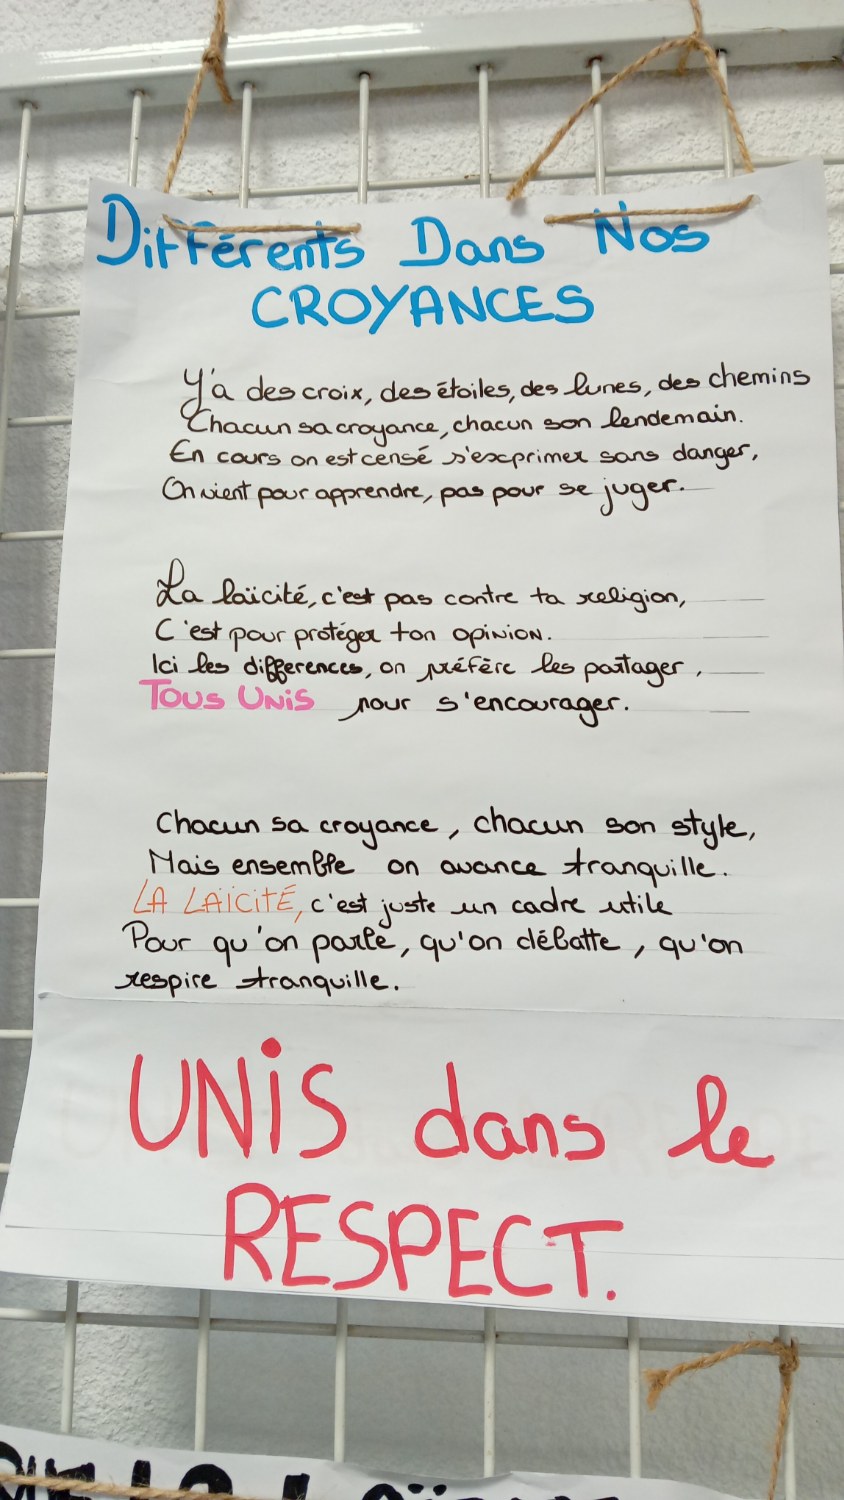 Différents Dans Nos
CROYANCES
Y'a des croix, des étoiles, des lunes, des chemins
Chacun sa croyance, chacun son lendemain.
En cours on est censé s'exprimer sans danger,
On vient pour apprendre, pas pour se juger.
La laïcité, c'est pas contre ta religion,
C'est pour protéger ton opinion.
Ici les differences, on préfère les partager,
TOUS UNIS pour s'encourager.
Chacun sa croyance, chacun son style,
Mais ensemble on avance tranquille.
LA LAÏCITÉ, c'est juste un cadre utile
Pour qu'on parle, qu'on débatte, qu'on
respire tranquille.
UNIS dans le
RESPECT.